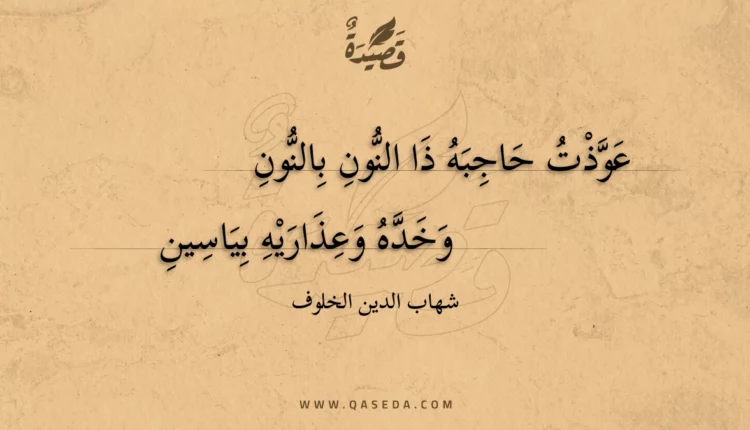 قَصِيدَةٌ
عَوَّذْتُ حَاجِبَهُ ذَا النُّونِ بِالنُّونِ
وَخَدَّهُ وَعِذَارَيْهِ بِيَاسِينِ
شهاب الدين الخلوف
WWW.QASEDA.COM